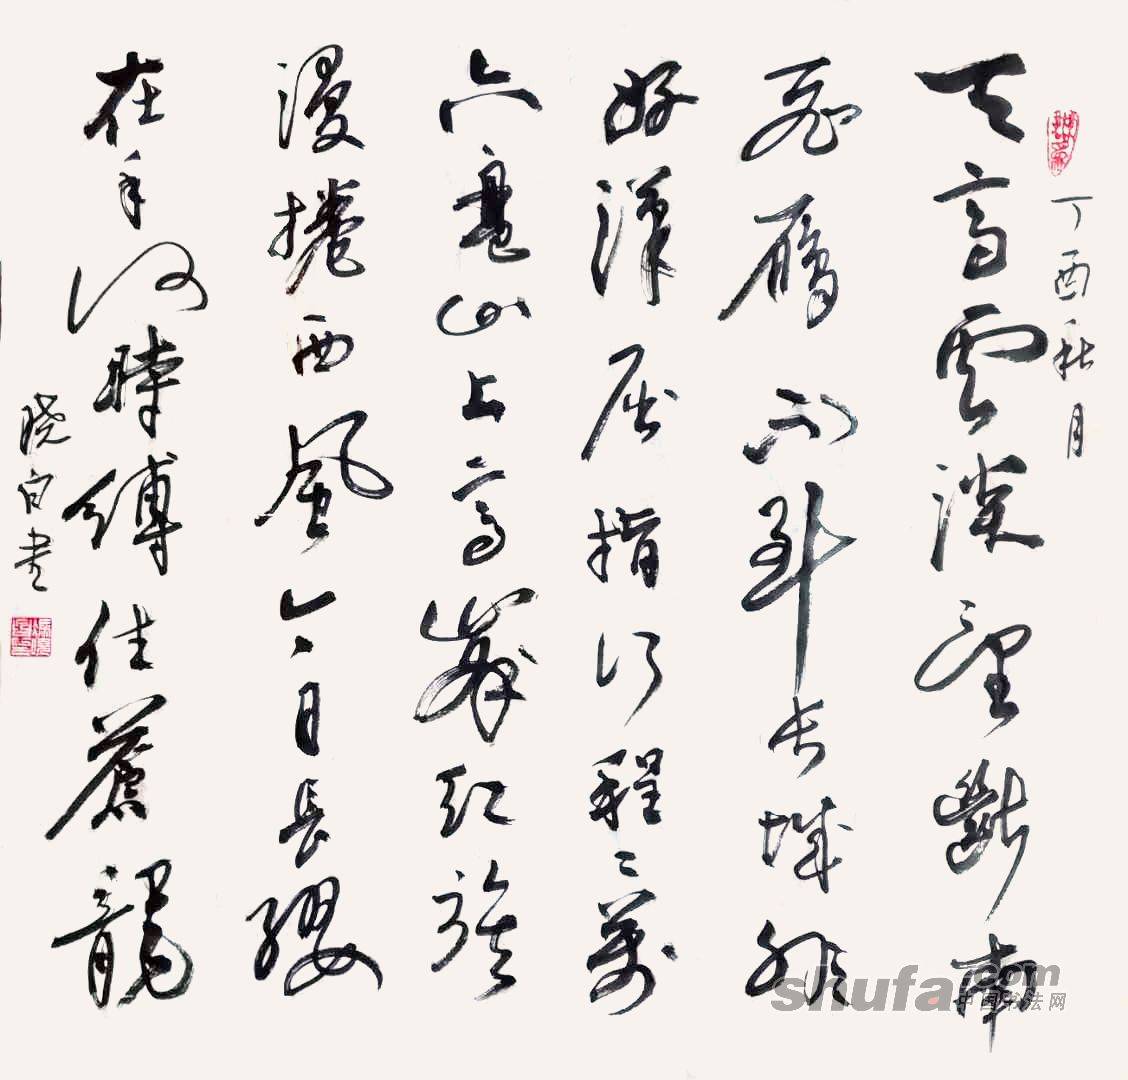 丁酉秋月
天高雲淡望斷南
飛鴈不到长城非
好漢屈指行程二萬
六盤山上高峯紅旗
漫捲西風今日長纓
在手何時縛住蒼龍
晓白書
shufa.com
中国书法网